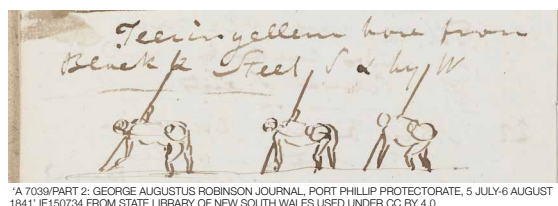 Teerinyellum bore from
Black & Steel S d by W
'A 7039/PART 2: GEORGE AUGUSTUS ROBINSON JOURNAL, PORT PHILLIP PROTECTORATE, 5 JULY-6 AUGUST
1841' IE150734 FROM STATE LIBRARY OF NEW SOUTH WALES USED UNDER CC BY 4.0